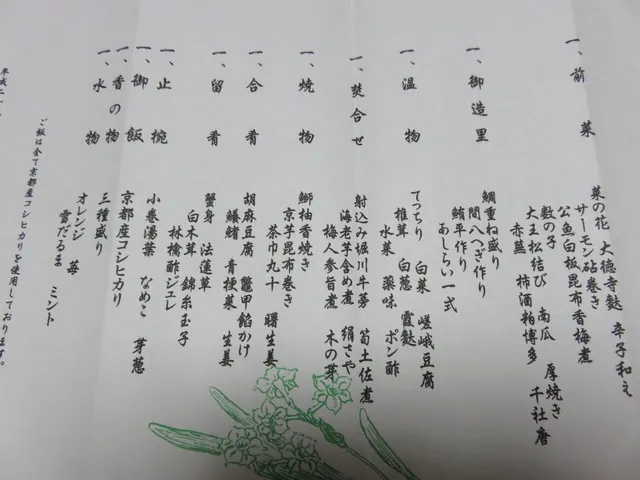 一、前菜
菜の花 大徳寺麩 辛子和え
サーモン砧巻き
公魚白板昆布香梅煮
数の子 南瓜 厚焼き
大王松結び 柿酒粕博多 千社唐
赤蒟
一、御造里
鯛重ね盛り
間八へぎ作り
鮪平作り
あしらい一式
一、温物
てっちり 白菜 嵯峨豆腐
椎茸 白葱 霞麩
水菜 薬味 ポン酢
一、焚合せ
射込み堀川牛蒡 筍土佐煮
海老芋含め煮 絹さや
梅人参旨煮 木の芽
一、焼物
鰤柚香焼き
京芋昆布巻き
茶巾丸十 曙生姜
一、合肴
胡麻豆腐 鼈甲餡かけ
鱶鰭 青梗菜 生姜
一、留肴
蟹身 法蓮草
白木茸 錦糸玉子
林檎酢ジュレ
一、止椀
小巻湯葉 なめこ 芽葱
一、御飯
京都産コシヒカリ
一、香の物
三種盛り
一、水物
オレンジ 苺
雪だるま ミント
ご飯は全て京都産コシヒカリを使用しております。
平成二